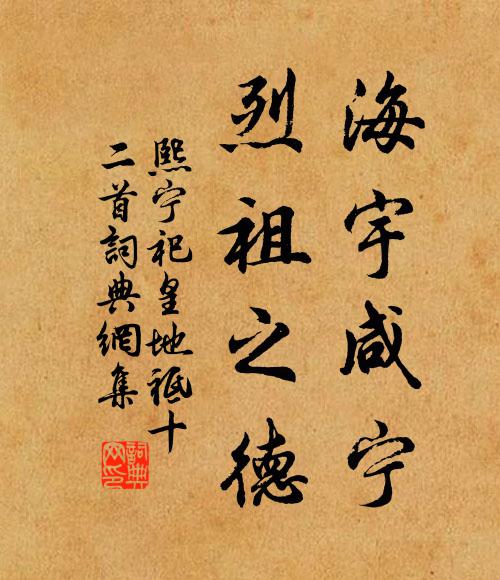 海宇咸宁
烈祖之德
熙宁祀皇地祗十
二首詞典網集
詞典网印